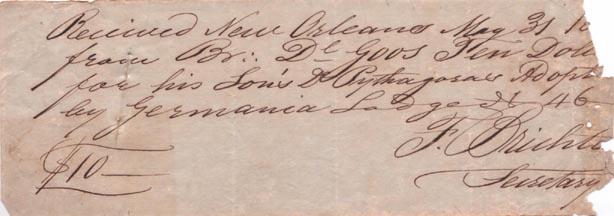 Received New Orleans May 31 18
from Br:. De Goos Ten Dol
for his Son's De Pythagoras Adopt
by Germania Lodge No 46
F.
Secretary
$10—